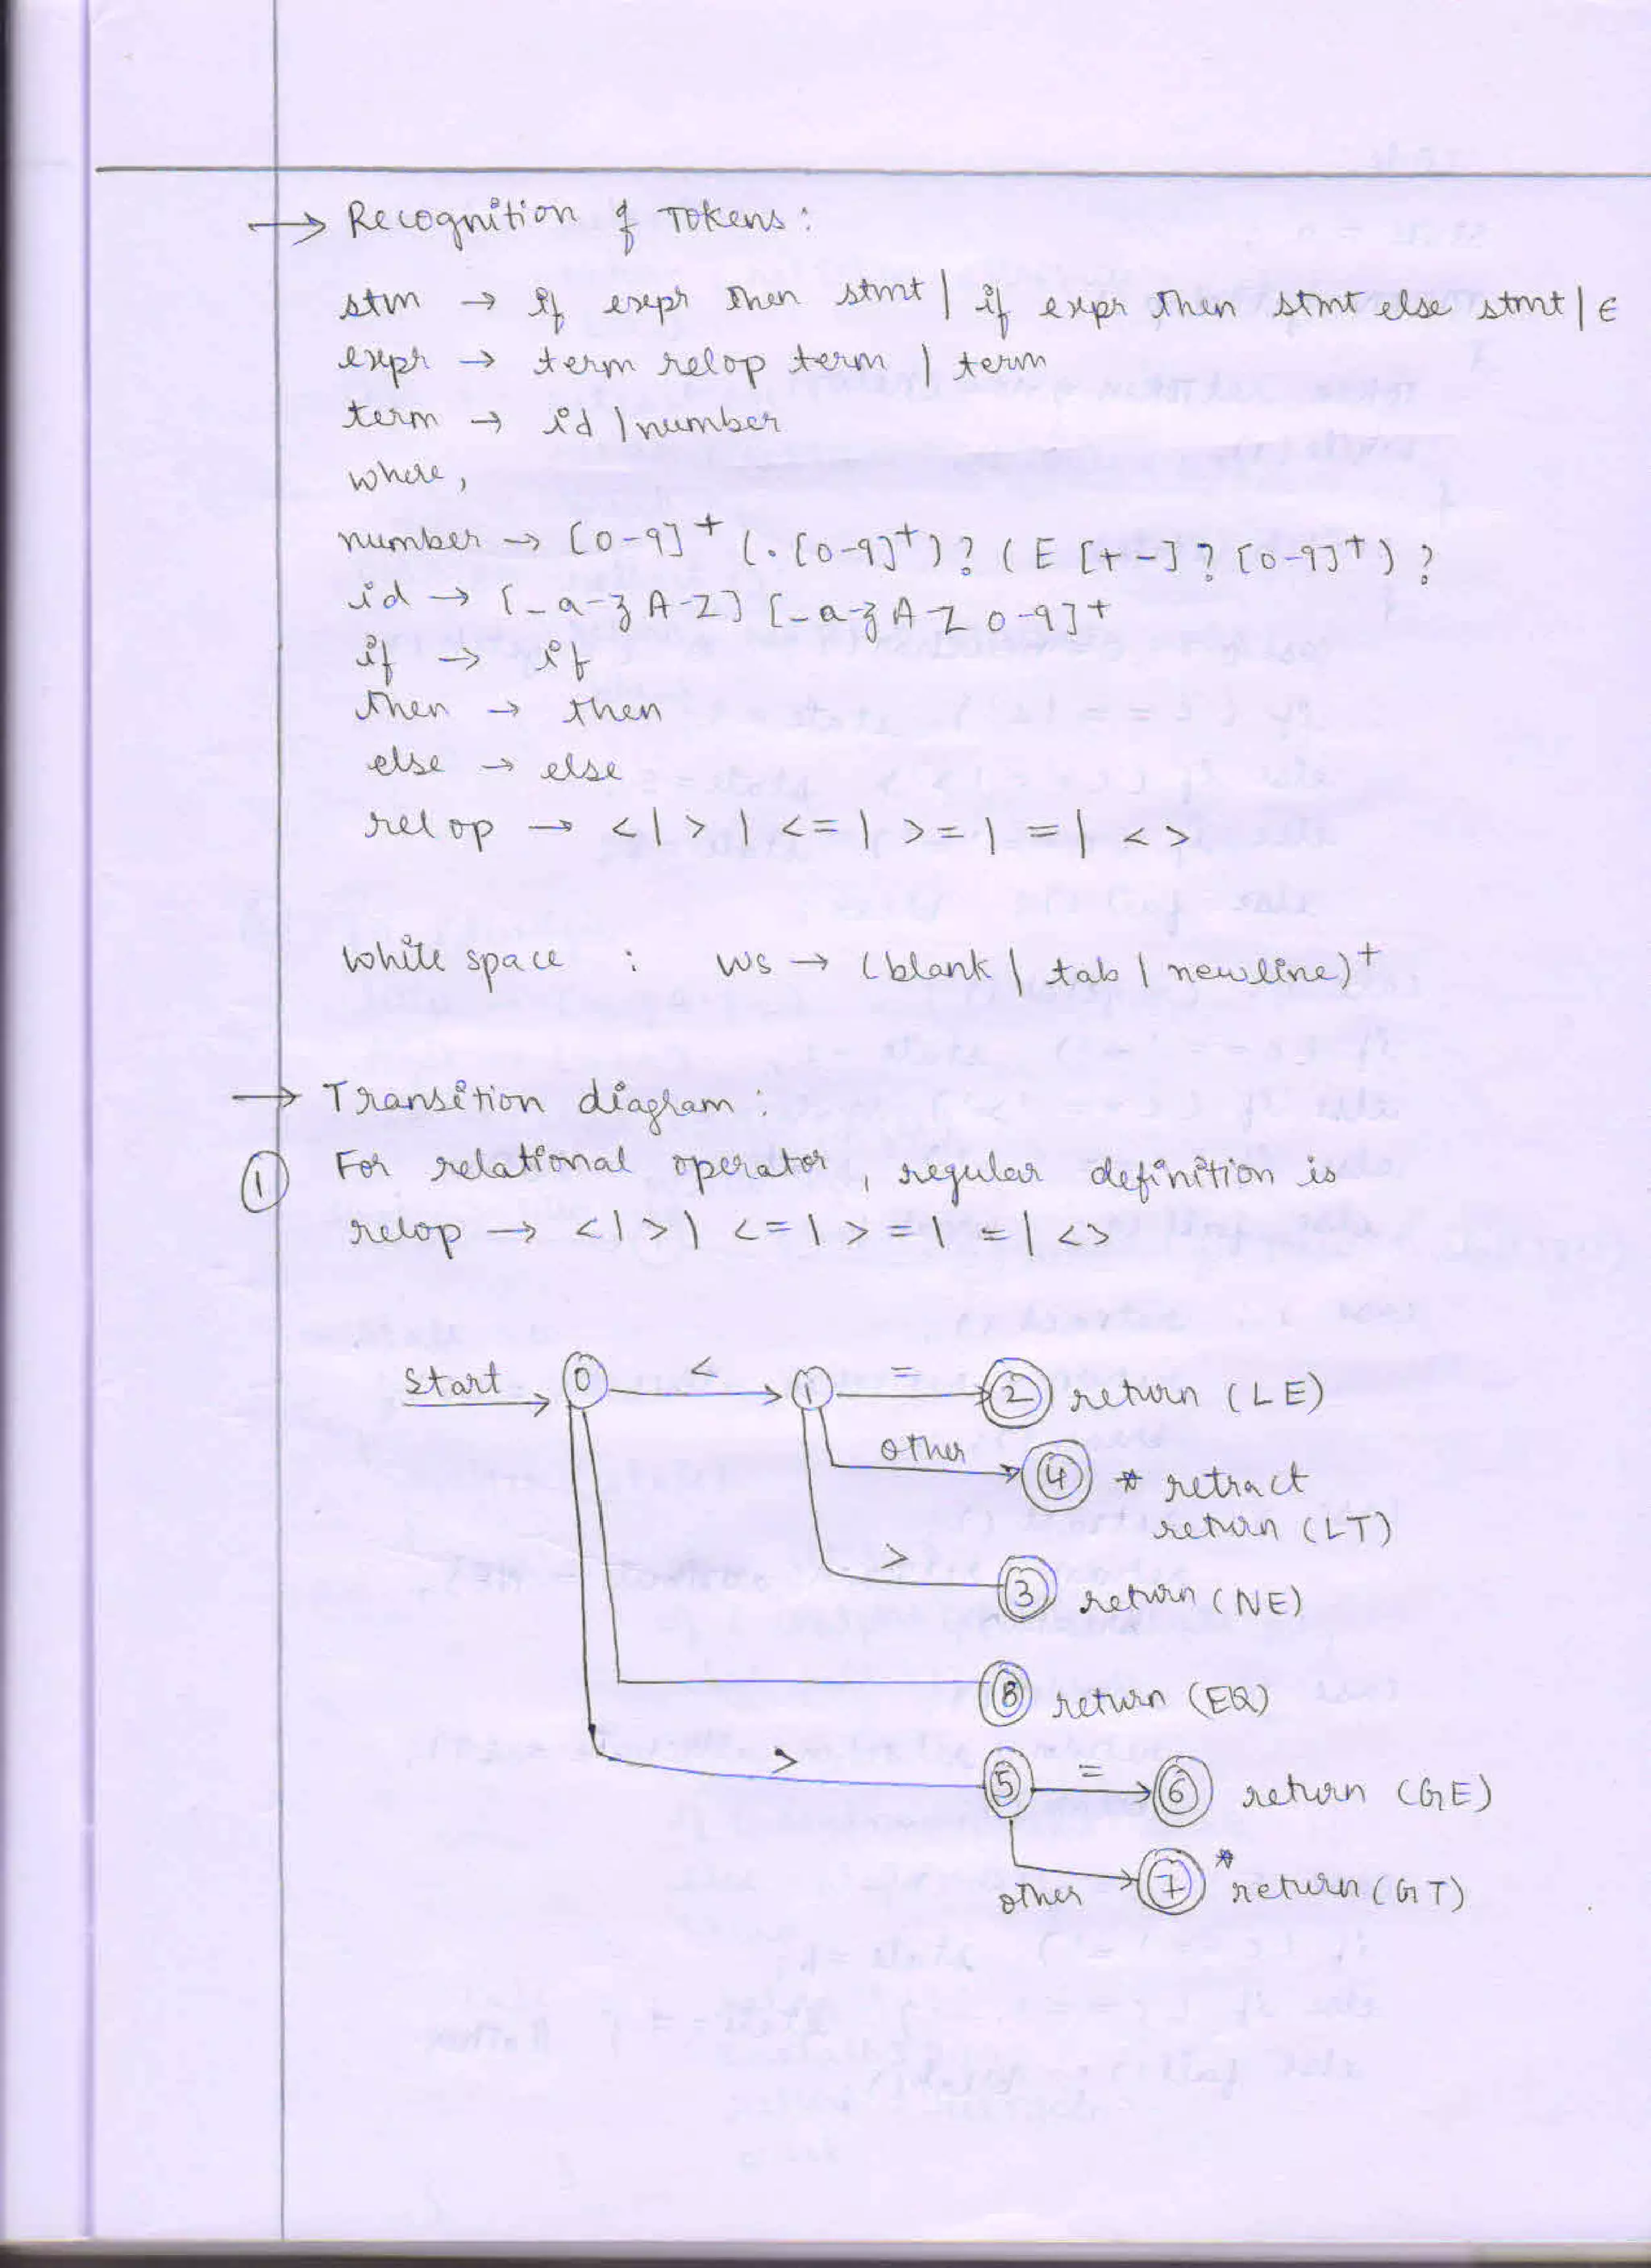 → Recognition of Tokens:
stm → if expr then stmt | if expr then stmt else stmt | ε
expr → term relop term | term
term → id | number
where,
number → [0-9]+ (.[0-9]+)? (E [+-]? [0-9]+)?
id → [_a-zA-Z] [_a-zA-Z0-9]+
if → if
then → then
else → else
relop → < | > | <= | >= | = | <>
White space : ws → (blank | tab | newline)+
→ Transition diagram:
① For relational operator, regular definition is
relop → < | > | <= | >= | = | <>
Start 0 < 1 = 2 return (LE)
other 4 * retract
return (LT)
> 3 return (NE)
8 return (EQ)
> 5 = 6 return (GE)
other 7 * return (GT)